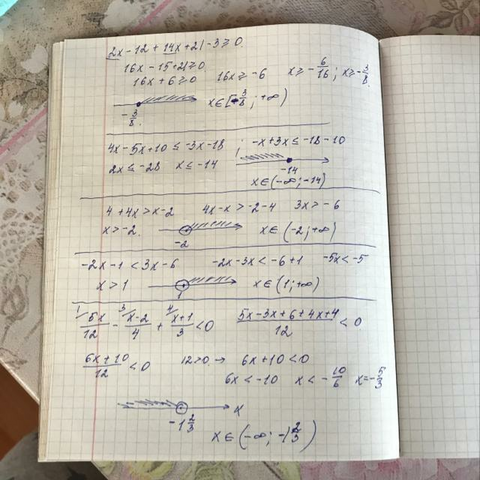 2x-12+14x+21-3≥0
16x-15+21≥0
16x+6≥0 16x≥-6 x≥-6/16; x≥-3/8
-3/8 x∈[-3/8; +∞)
4x-5x+10≤-3x-18; -x+3x≤-18-10
2x≤-28 x≤-14
-14
x∈(-∞;-14)
4+4x>x-2 4x-x>-2-4 3x>-6
x>-2 -2 x∈(-2;+∞)
-2x-1<3x-6 -2x-3x<-6+1 -5x<-5
x>1 1 x∈(1;+∞)
1/ 5x/12 - 3/ x-2/4 + 4/ x+1/3 <0 5x-3x+6+4x+4/12 <0
6x+10/12 <0 12>0 → 6x+10<0
6x<-10 x<-10/6 x=-5/3
-1 2/3 x
x∈(-∞; -1 2/3)